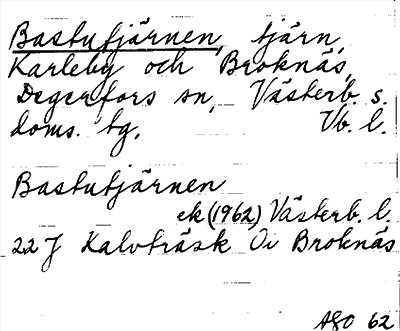 Bastutjärnen, tjärn,
Karleby och Broknäs,
Degerfors sn, Västerb. s.
doms. tg, Vb. l.
Bastutjärnen
ek (1962) Västerb. l.
22 J Kalvträsk Öi Broknäs
ASO 62